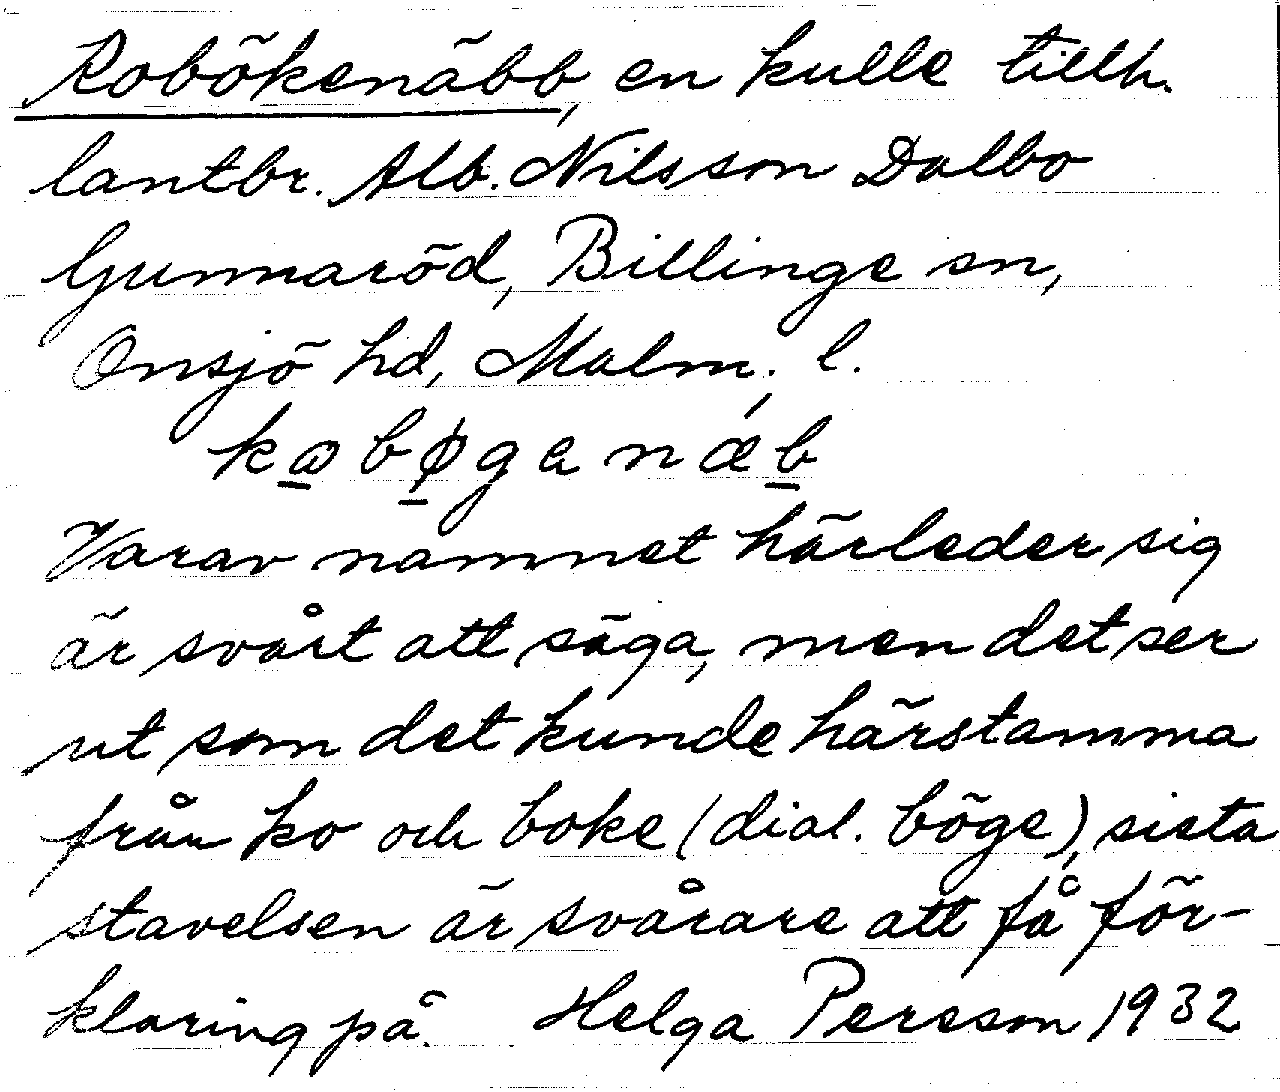 Kobökenäbb, en kulle tillh.
lantbr. Alb. Nilsson Dalbo
Gunnaröd, Billinge sn,
Onsjö hd, Malm. l.
kabøgenǽb
Varav namnet härleder sig
är svårt att säga, men det ser
ut som det kunde härstamma
från ko och boke (dial. böge), sista
stavelsen är svårare att få för-
klaring på. Helga Persson 1932